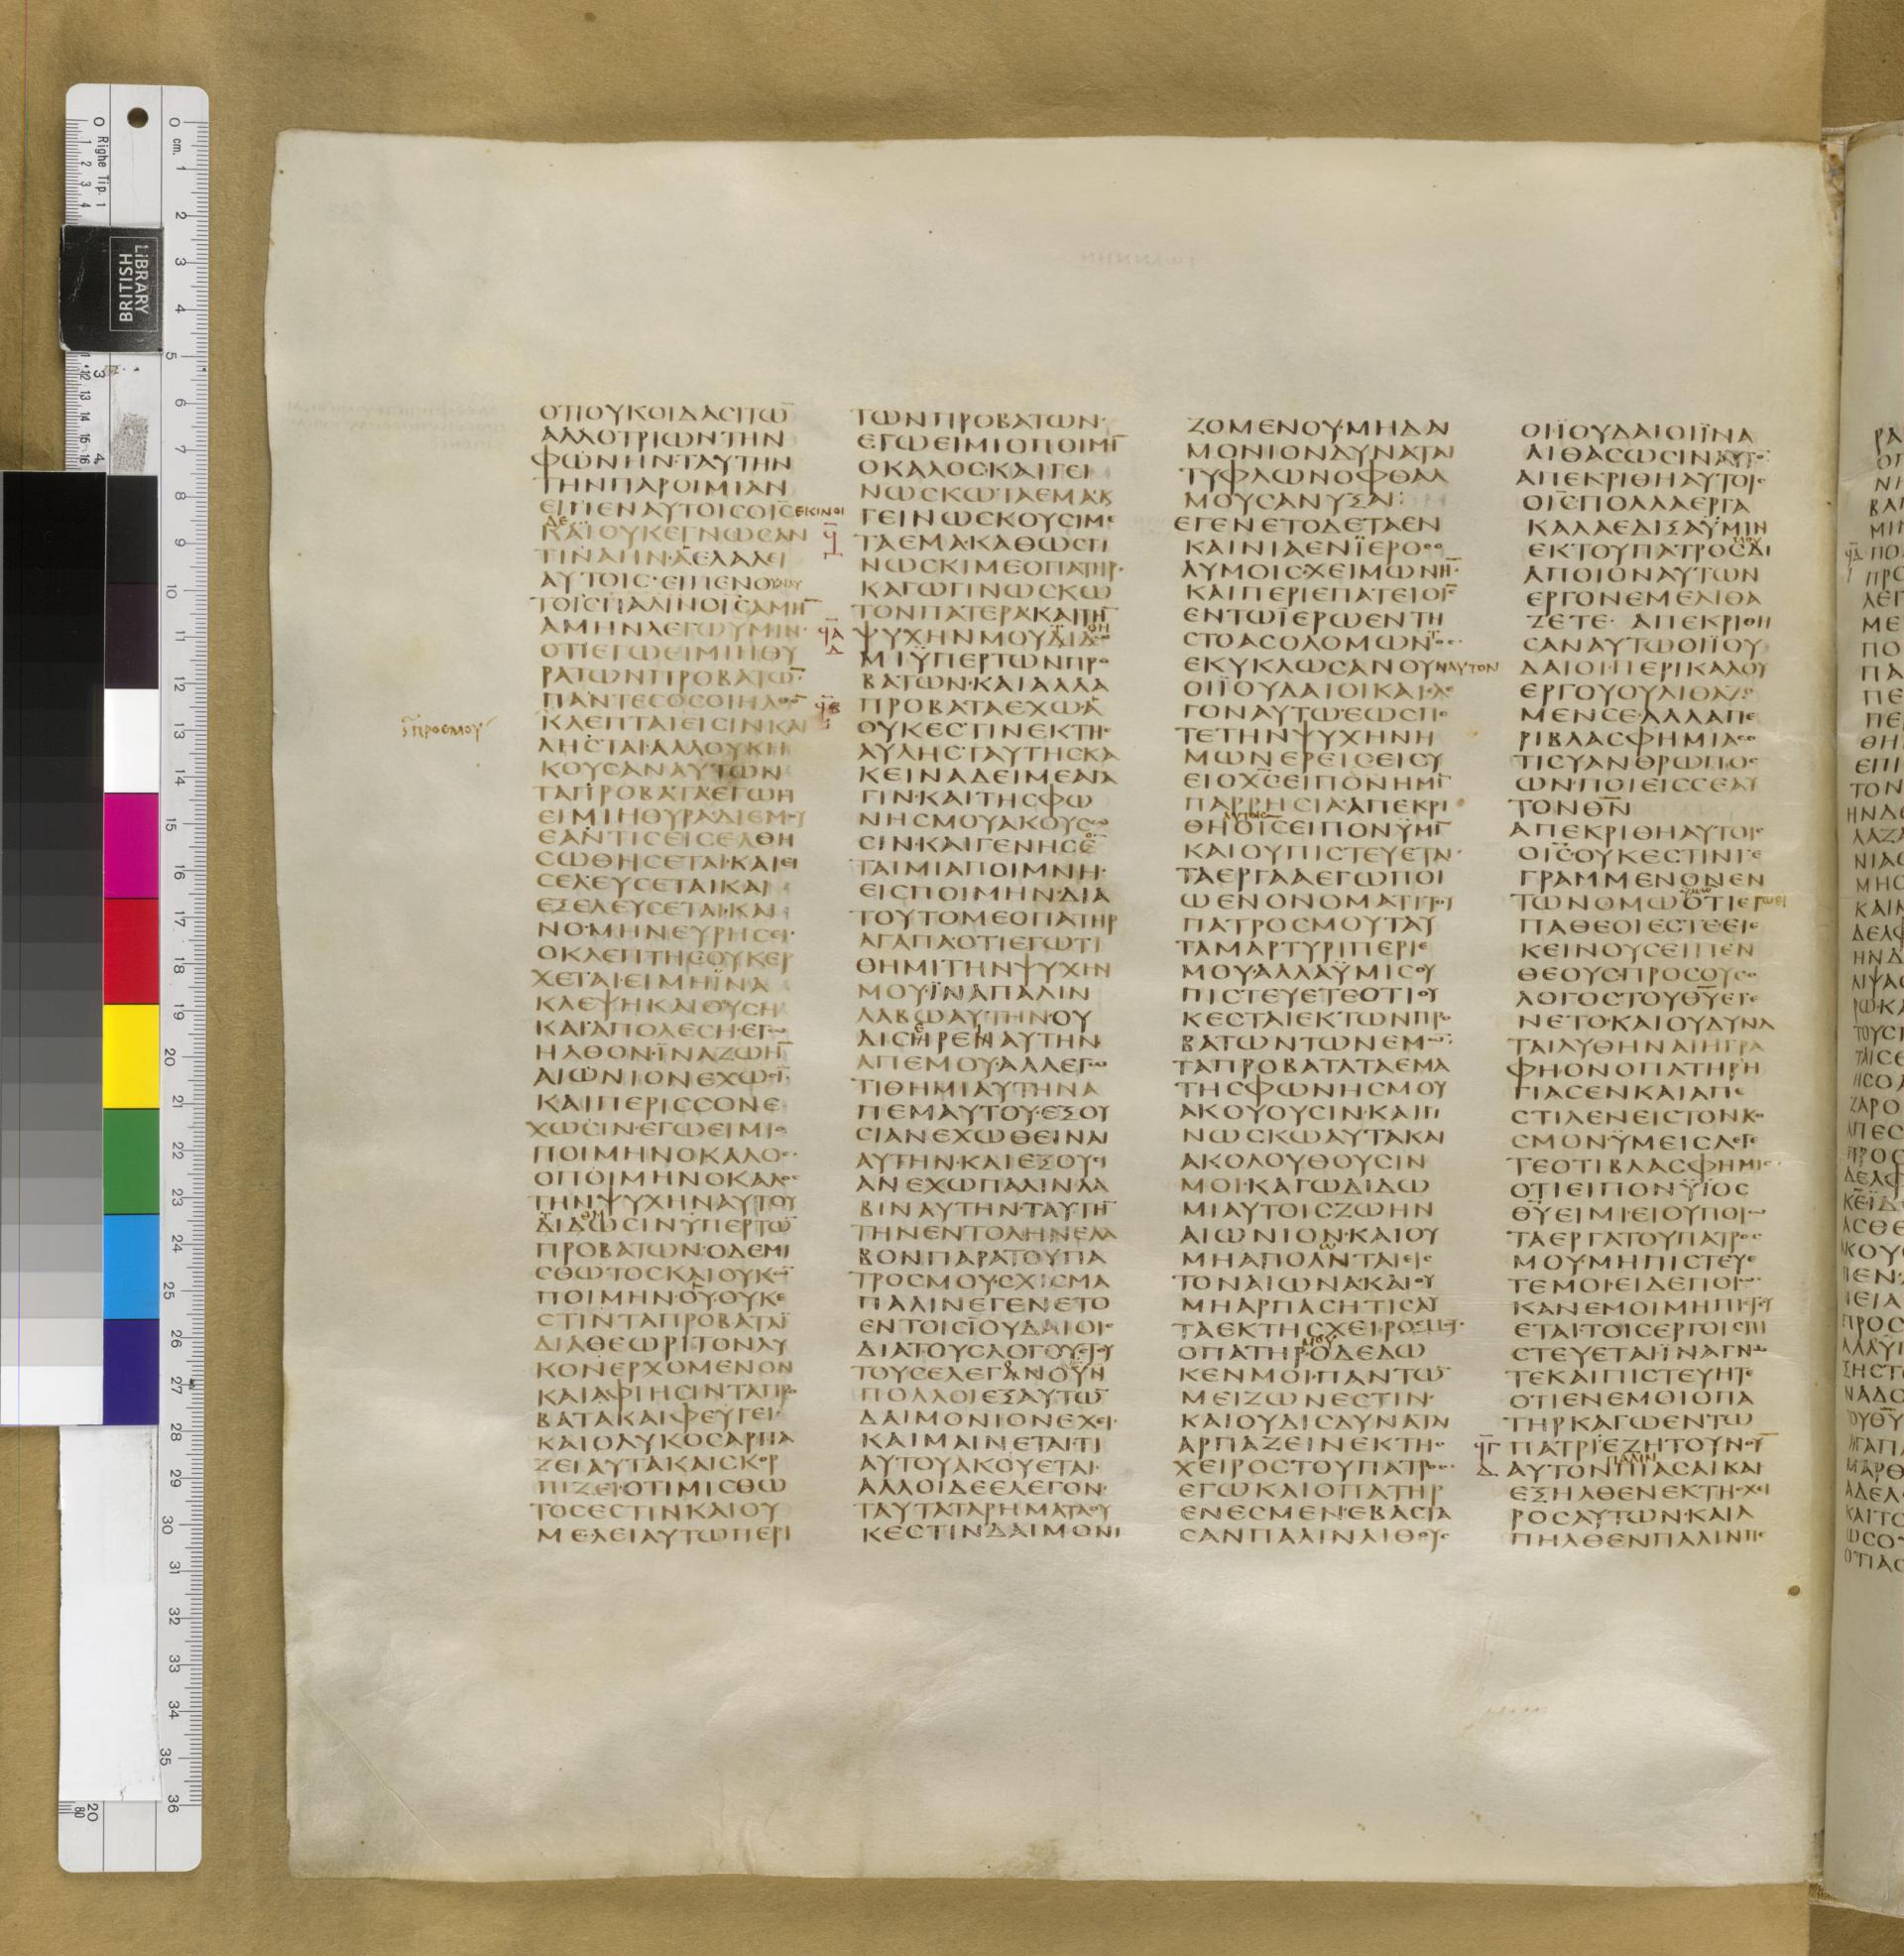 ΟΤΙΟΥΚΟΙΔΑϹΙΤΩ̅
ΑΛΛΟΤΡΙΩΝΤΗΝ
ΦΩΝΗΝ·ΤΑΥΤΗΝ
ΤΗΝΠΑΡΟΙΜΙΑΝ
ΕΙΠΕΝΑΥΤΟΙϹΟΙ̅Ϲ̅ΕΚΙΝΟΙ
ΔΕ
ΚΑΙΟΥΚΕΓΝΩϹΑΝ
ΤΙΝΑΗΝ·ΑΕΛΑΛΕΙ
ΑΥΤΟΙϹ·ΕΙΠΕΝΟΥΝΑΥ
ΤΟΙϹΠΑΛΙΝΟΙ̅Ϲ̅ΑΜΗ̅
ΑΜΗΝΛΕΓΩΥΜΙΝ·
ΟΤΙΕΓΩΕΙΜΙΗΘΥ
ΡΑΤΩΝΠΡΟΒΑΤΩ̅·
ΠΑΝΤΕϹΟϹΟΙΗΛΘΟ̅
ΠΡΟΕΜΟΥ
ΚΛΕΠΤΑΙΕΙϹΙΝΚΑΙ
ΛΗϹΤΑΙ·ΑΛΛΟΥΚΗ
ΚΟΥϹΑΝΑΥΤΩΝ
ΤΑΠΡΟΒΑΤΑΕΓΩΗ
ΕΙΜΙΗΘΥΡΑΔΙΕΜΟΥ
ΕΑΝΤΙϹΕΙϹΕΛΘΗ
ϹΩΘΗϹΕΤΑΙ·ΚΑΙΕΙ
ϹΕΛΕΥϹΕΤΑΙΚΑΙ
ΕΞΕΛΕΥϹΕΤΑΙ·ΚΑΙ
ΝΟΜΗΝΕΥΡΗϹΕΙ·
ΟΚΛΕΠΤΗϹΟΥΚΕΡ
ΧΕΤΑΙ·ΕΙΜΗΪΝΑ
ΚΛΕΨΗΚΑΙΘΥϹΗ
ΚΑΙΑΠΟΛΕϹΗ·ΕΓΩ
ΗΛΘΟΝ·ΪΝΑΖΩΗ̅
ΑΙΩΝΙΟΝΕΧΩϹΙ̅
ΚΑΙΠΕΡΙϹϹΟΝΕ
ΧΩϹΙΝ·ΕΓΩΕΙΜΙΟ
ΠΟΙΜΗΝΟΚΑΛΟϹ·
ΟΠΟΙΜΗΝΟΚΑΛΟϹ
ΤΗΝΨΥΧΗΝΑΥΤΟΥ
ΔΙΔΩϹΙΝΫΠΕΡΤΩ̅
ΠΡΟΒΑΤΩΝ·ΟΔΕΜΙ
ϹΘΩΤΟϹΚΑΙΟΥΚΩ̅
ΠΟΙΜΗΝ·ΟΥ̅ΟΥΚΕ
ϹΤΙΝΤΑΠΡΟΒΑΤΑΪ
ΔΙΑΘΕΩΡΙΤΟΝΛΥ
ΚΟΝΕΡΧΟΜΕΝΟΝ
ΚΑΙΑΦΙΗϹΙΝΤΑΠΡΟ
ΒΑΤΑΚΑΙΦΕΥΓΕΙ·
ΚΑΙΟΛΥΚΟϹΑΡΠΑ
ΖΕΙΑΥΤΑΚΑΙϹΚΟΡ
ΠΙΖΕΙ·ΟΤΙΜΙϹΘΩ
ΤΟϹΕϹΤΙΝΚΑΙΟΥ
ΜΕΛΕΙΑΥΤΩΠΕΡΙ
ΤΩΝΠΡΟΒΑΤΩΝ·
ΕΓΩΕΙΜΙΟΠΟΙΜΗ̅
ΟΚΑΛΟϹ·ΚΑΙΓΕΙ
ΝΩϹΚΩ·ΤΑΕΜΑ·Κ
ΓΕΙΝΩϹΚΟΥϹΙΜΕ
ΤΑΕΜΑ·ΚΑΘΩϹΓΙ
ΝΩϹΚΙΜΕΟΠΑΤΗΡ·
ΚΑΓΩΓΙΝΩϹΚΩ
ΤΟΝΠΑΤΕΡΑ·ΚΑΙΤΗ̅
ΨΥΧΗΝΜΟΥΔΙΔΩ
ΜΙΫΠΕΡΤΩΝΠΡΟ
ΒΑΤΩΝ·ΚΑΙΑΛΛΑ
ΠΡΟΒΑΤΑΕΧΩ·Α
ΟΥΚΕϹΤΙΝΕΚΤΗϹ
ΑΥΛΗϹΤΑΥΤΗϹΚΑ
ΚΕΙΝΑΔΕΙΜΕΑΓΑ
ΓΙΝ·ΚΑΙΤΗϹΦΩ
ΝΗϹΜΟΥΑΚΟΥϹΩ
ϹΙΝ·ΚΑΙΓΕΝΗϹΕ
ΤΑΙΜΙΑΠΟΙΜΝΗ·
ΕΙϹΠΟΙΜΗΝ·ΔΙΑ
ΤΟΥΤΟΜΕΟΠΑΤΗΡ
ΑΓΑΠΑΟΤΙΕΓΩΤΙ
ΘΗΜΙΤΗΝΨΥΧΗΝ
ΜΟΥ·ΪΝΑΠΑΛΙΝ
ΛΑΒΩΑΥΤΗΝ·ΟΥ
ΔΙϹΗΡΕΝΑΥΤΗΝ
ΑΠΕΜΟΥ·ΑΛΛΕΓΩ
ΤΙΘΗΜΙΑΥΤΗΝΑ
ΠΕΜΑΥΤΟΥ·ΕΞΟΥ
ϹΙΑΝΕΧΩΘΕΙΝΑΙ
ΑΥΤΗΝ·ΚΑΙΕΞΟΥϹΙ
ΑΝΕΧΩΠΑΛΙΝΛΑ
ΒΙΝΑΥΤΗΝ·ΤΑΥΤΗ̅
ΤΗΝΕΝΤΟΛΗΝΕΛΑ
ΒΟΝΠΑΡΑΤΟΥΠΑ
ΤΡΟϹΜΟΥ·ϹΧΙϹΜΑ
ΠΑΛΙΝΕΓΕΝΕΤΟ
ΕΝΤΟΙϹΙΟΥΔΑΙΟΙϹ
ΔΙΑΤΟΥϹΛΟΓΟΥϹΤΟΥ
ΤΟΥϹΕΛΕΓΑΝΟΥΝ
ΠΟΛΛΟΙΕΞΑΥΤΩ̅
ΔΑΙΜΟΝΙΟΝΕΧΕΙ·
ΚΑΙΜΑΙΝΕΤΑΙΤΙ
ΑΥΤΟΥΑΚΟΥΕΤΑΙ·
ΑΛΛΟΙΔΕΕΛΕΓΟΝ·
ΤΑΥΤΑΤΑΡΗΜΑΤΑΟΥ
ΚΕϹΤΙΝΔΑΙΜΟΝΙ
ΖΟΜΕΝΟΥ·ΜΗΔΑΙ
ΜΟΝΙΟΝΔΥΝΑΤΑΙ
ΤΥΦΛΩΝΟΦΘΑΛ
ΜΟΥϹΑΝΥΞΑΙ:
ΕΓΕΝΕΤΟΔΕΤΑΕΝ
ΚΑΙΝΙΑΕΝΪΕΡΟϹΟ
ΛΥΜΟΙϹ·ΧΕΙΜΩΝΗΝ̅·
ΚΑΙΠΕΡΙΕΠΑΤΕΙΟΙ̅Ϲ̅
ΕΝΤΩΪΕΡΩΕΝΤΗ
ϹΤΟΑϹΟΛΟΜΩΝΤΟϹ·
ΕΚΥΚΛΩϹΑΝΟΥΝΑΥΤΟΝ
ΟΙΪΟΥΔΑΙΟΙΚΑΙΕΛΕ
ΓΟΝΑΥΤΩ·ΕΩϹΠΟ
ΤΕΤΗΝΨΥΧΗΝΗ
ΜΩΝΕΡΕΙϹΕΙϹΥ
ΕΙΟΧ̅Ϲ̅ΕΙΠΟΝΗΜΙ̅
ΠΑΡΡΗϹΙΑ·ΑΠΕΚΡΙ
ΑΥΤΟΙϹ
ΘΗΟΙ̅Ϲ̅ΕΙΠΟΝΫΜΙ̅
ΚΑΙΟΥΠΙϹΤΕΥΕΤΑΙ·
ΤΑΕΡΓΑΑΕΓΩΠΟΙ
ΩΕΝΟΝΟΜΑΤΙΤΟΥ
ΠΑΤΡΟϹΜΟΥΤΑΥ
ΤΑΜΑΡΤΥΡΙΠΕΡΙΕ
ΜΟΥ·ΑΛΛΑΫΜΙϹΟΥ
ΠΙϹΤΕΥΕΤΕΟΤΙΟΥ
ΚΕϹΤΑΙΕΚΤΩΝΠΡΟ
ΒΑΤΩΝΤΩΝΕΜΩ̅:
ΤΑΠΡΟΒΑΤΑΤΑΕΜΑ
ΤΗϹΦΩΝΗϹΜΟΥ
ΑΚΟΥΟΥϹΙΝ·ΚΑΓΙ
ΝΩϹΚΩΑΥΤΑΚΑΙ
ΑΚΟΛΟΥΘΟΥϹΙΝ
ΜΟΙ·ΚΑΓΩΔΙΔΩ
ΜΙΑΥΤΟΙϹΖΩΗΝ
ΑΙΩΝΙΟΝ·ΚΑΙΟΥ
ΜΗΑΠΟΛΝΤΑΙΕΙϹ
ΤΟΝΑΙΩΝΑ·ΚΑΙΟΥ
ΜΗΑΡΠΑϹΗΤΙϹΑΥ
ΤΑΕΚΤΗϹΧΕΙΡΟϹΜΟΥ·
ΜΟΥ
ΟΠΑΤΗΡΟΔΕΔΩ
ΚΕΝΜΟΙ·ΠΑΝΤΩ̅
ΜΕΙΖΩΝΕϹΤΙΝ·
ΚΑΙΟΥΔΙϹΔΥΝΑΤΑΙ
ΑΡΠΑΖΕΙΝΕΚΤΗϹ
ΧΕΙΡΟϹΤΟΥΠΑΤΡΟϹ·
ΕΓΩΚΑΙΟΠΑΤΗΡ
ΕΝΕϹΜΕΝ·ΕΒΑϹΤΑ
ϹΑΝΠΑΛΙΝΛΙΘΟΥϹ
ΟΙΪΟΥΔΑΙΟΙΪΝΑ
ΛΙΘΑϹΩϹΙΝΑΥΤΟ̅:
ΑΠΕΚΡΙΘΗΑΥΤΟΙϹ
ΟΙ̅Ϲ̅ΠΟΛΛΑΕΡΓΑ
ΚΑΛΛΑΕΔΙΞΑΫΜΙΝ
ΜΟΥ
ΕΚΤΟΥΠΑΤΡΟϹΔΙ
ΑΠΟΙΟΝΑΥΤΩΝ
ΕΡΓΟΝΕΜΕΛΙΘΑ
ΖΕΤΕ· ΑΠΕΚΡΙΘΗ
ϹΑΝΑΥΤΩΟΙΪΟΥ
ΔΑΙΟΙ·ΠΕΡΙΚΑΛΟΥ
ΕΡΓΟΥΟΥΛΙΘΑΖΟ
ΜΕΝϹΕ·ΑΛΛΑΠΕ
ΡΙΒΛΑϹΦΗΜΙΑϹΟ
ΤΙϹΥΑΝΘΡΩΠΟϹ
ΩΝ·ΠΟΙΕΙϹϹΕΑΥ
ΤΟΝΘ̅Ν̅
ΑΠΕΚΡΙΘΗΑΥΤΟΙϹ
ΟΙ̅Ϲ̅·ΟΥΚΕϹΤΙΝΓΕ
ΓΡΑΜΜΕΝΟΝΕΝ
ΥΜΩ
ΤΩΝΟΜΩΟΤΙΕΓΩΕΙ
ΠΑΘΕΟΙΕϹΤΕΕΙΕ
ΚΕΙΝΟΥϹΕΙΠΕΝ
ΘΕΟΥϹ·ΠΡΟϹΟΥϹΟ
ΛΟΓΟϹΤΟΥΘ̅Υ̅ΕΓΕ
ΝΕΤΟ·ΚΑΙΟΥΔΥΝΑ
ΤΑΙΛΥΘΗΝΑΙΗΓΡΑ
ΦΗ·ΟΝΟΠΑΤΗΡΗ
ΓΙΑϹΕΝΚΑΙΑΠΕ
ϹΤΙΛΕΝΕΙϹΤΟΝΚΟ
ϹΜΟΝ·ΫΜΕΙϹΛΕΓΕ
ΤΕΟΤΙΒΛΑϹΦΗΜΙϹ·
ΟΤΙΕΙΠΟΝΫΪΟϹ
Θ̅Υ̅ΕΙΜΙ·ΕΙΟΥΠΟΙΩ
ΤΑΕΡΓΑΤΟΥΠΑΤΡΟϹ
ΜΟΥ·ΜΗΠΙϹΤΕΥΕ
ΤΕΜΟΙ·ΕΙΔΕΠΟΙΩ·
ΚΑΝΕΜΟΙΜΗΠΙϹΤΕΥ
ΕΤΑΙ·ΤΟΙϹΕΡΓΟΙϹΠΙ
ϹΤΕΥΕΤΑΙΪΝΑΓΝΩ
ΤΕΚΑΙΠΙϹΤΕΥΗΤΕ
ΟΤΙΕΝΕΜΟΙΟΠΑ
ΤΗΡΚΑΓΩΕΝΤΩ
ΠΑΤΡΙ·ΕΖΗΤΟΥΝΟΥ̅
ΠΑΛΙΝ
ΑΥΤΟΝΠΙΑϹΑΙΚΑΙ
ΕΞΗΛΘΕΝΕΚΤΗϹΧΕΙ
ΡΟϹΑΥΤΩΝ·ΚΑΙΑ
ΠΗΛΘΕΝΠΑΛΙΝΠΕ